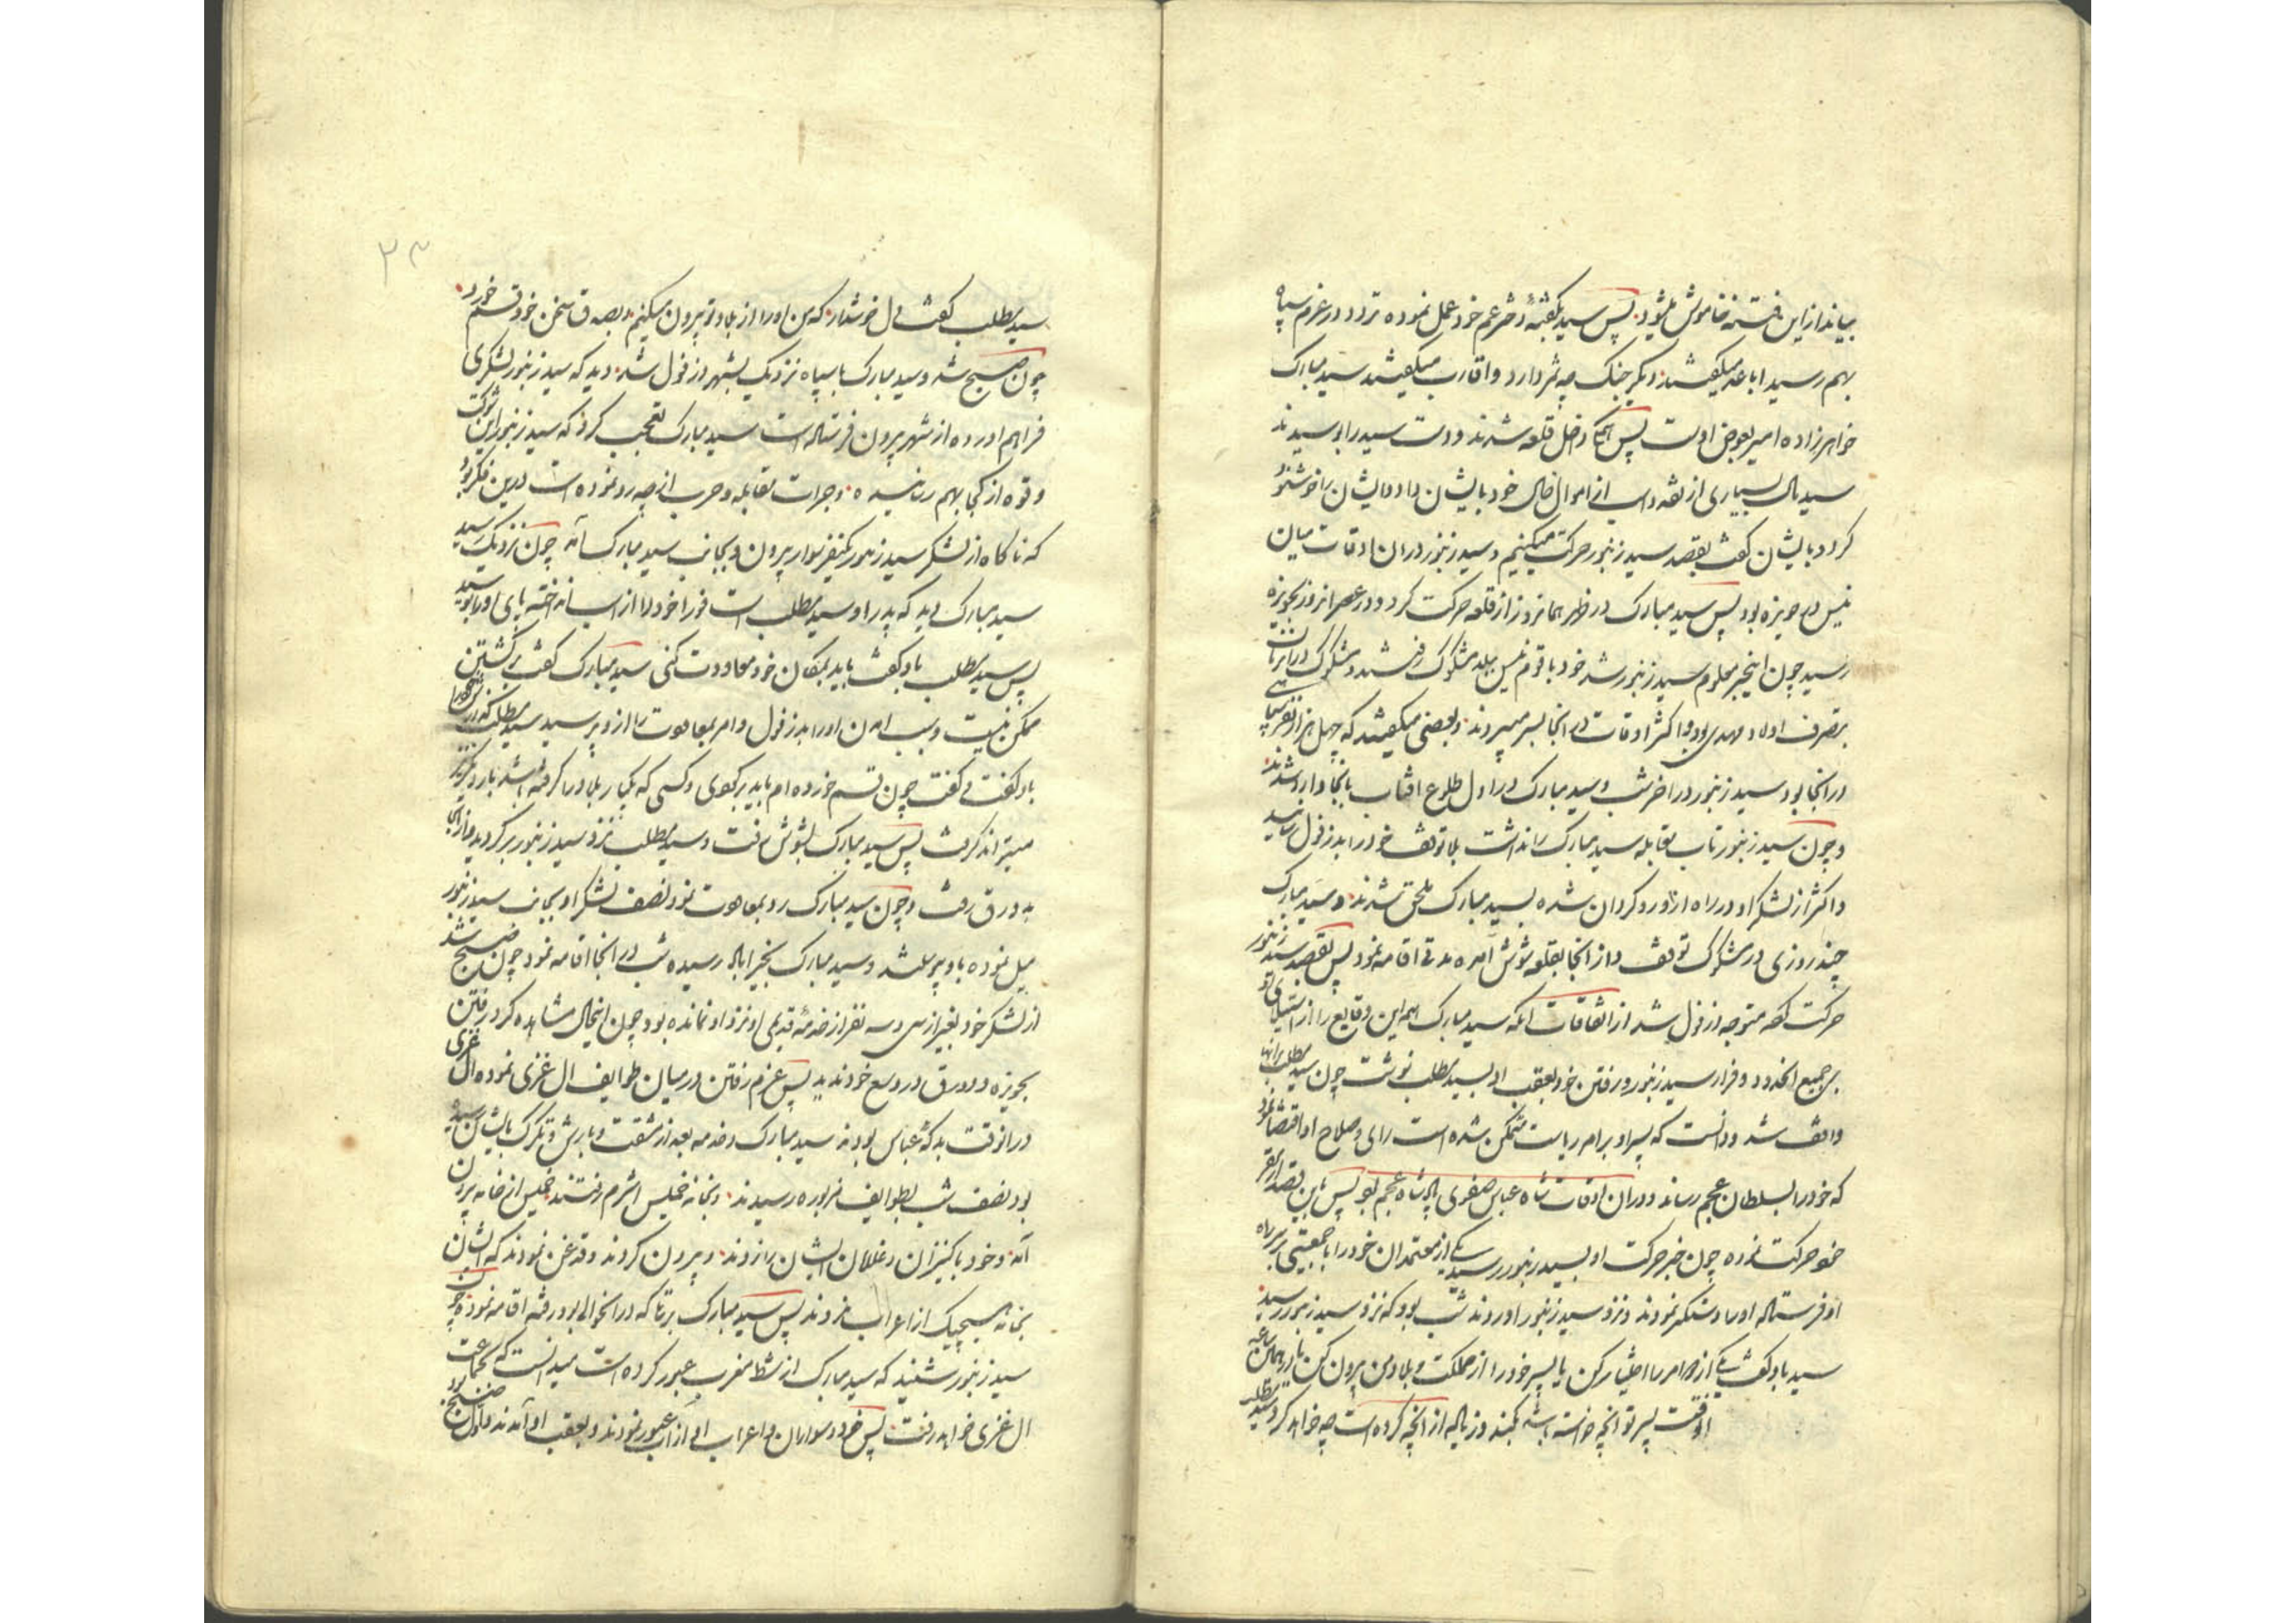 بیاندازاین فتنه خاموش میشود پس سید بگفتهٔ دختر عم خود عمل نموده تردد در عزم سپاه
بهم رسید اباعد میگفتند دیگر جنک چه ثمر دارد و اقارب میگفتند سید مبارک
خواهرزاده امیر بعوض اوست پس همکی داخل قلعه شدند و دست سید را بوسیدند
سید مال بسیاری از نقد و اسب از اموال خال خود بایشان داد و ایشان را خوشنود
کرد و بایشان کفت بقصد سید زنبور حرکت میکنیم و سید زنبور دران اوقات میان
نیس در حویزه بود پس سید مبارک در ظهر همانروز از قلعه حرکت کرد و در عصر انروز بحویزه
رسید چون اینخبر معلوم سید زنبور شد خود با قوم نیس ببلد مشکوک رفتند و مشکوک دران زمان
بتصرف اولاد مهدی بود و اکثر اوقات در انجا بسر میبردند و بعضی میکفتند که چهل هزار نفر سپاهی
در انجا بود سید زنبور در اخر شب و سید مبارک در اول طلوع افتاب بانجا وارد شدند
و چون سید زنبور تاب مقابله سید مبارک را نداشت بلا توقف خود را بدزفول رسانید
و اکثر از لشکر او در راه از او روکردان شده بسید مبارک ملحق شدند و سید مبارک
چند روزی در مشکوک توقف و از انجا بقلعه شوش آمده مدتی اقامه نمود پس بقصد سید زنبور
حرکت کرده متوجه دزفول شد از اتفاقات آنکه سید مبارک همه این وقایع را از استیلای او
بر جمیع انحدود و فرار سید زنبور و رفتن خود بعقب او بسید مطلب نوشت چون سید مطلب برانها
واقف شد و دانست که پسر او بر امر ریاست متمکن شده است رای و صلاح او اقتضا نمود
که خود را بسلطان عجم رساند و دران اوقات شاه عباس صفوی پادشاه عجم بود پس باین قصد از مقر
خود حرکت نموده چون خبر حرکت او بسید زنبور رسید یکی از معتمدان خود را با جمعیتی بر سر راه
او فرستاده او را دستکیر نمودند و نزد سید زنبور اوردند شب بود که نزد سید زنبور رسید
سید باو کفت یکی از دو امر را اختیار کن یا پسر خود را از مملکت و بلاد من بیرون کن یا در همان ساعه
اوقت پسر تو انچه خواسته باشد بکند و زیاده از انچه کرده است چه خواهد کرد سید مطلب
سید مطلب کفت دل خوشدار که من او را از بلاد تو بیرون میکنم و بصدق سخن خود قسم خورد
چون صبح شد و سید مبارک با سپاه نزدیک بشهر دزفول شد دید که سید زنبور لشکری
فراهم اورده از شهر بیرون فرستاده است سید مبارک تعجب کرد که سید زنبور این شوکت
و قوه از کجا بهم رسانیده و جرات مقابله و حرب از چه رو نموده است درین فکر بود
که ناکاه از لشکر سید زنبور یکنفر سوار بیرون و بجانب سید مبارک آمد چون نزدیک رسید
سید مبارک دید که پدر او سید مطلب است فورا خود را از اسب انداخته پای او را بوسید
پس سید مطلب باو کفت باید بمکان خود معاودت کنی سید مبارک کفت برکشتن
ممکن نیست و سبب امدن او را بدزفول و امر بمعاودت را از وی پرسید سید مطلب
باو کفت و کفت چون قسم خورده ام باید برکردی و کسی که یکبار بلاد را کرفته باشد بار دیکر نیز
میتواند کرفت پس سید مبارک بشوش رفت و سید مطلب نزد سید زنبور برکردید و از انجا
به دورق رفت و چون سید مبارک رو بمعاودت نمود نصف لشکر او بجانب سید زنبور
میل نموده باو پیوستند و سید مبارک بخیراباد رسیده شب در انجا اقامه نمود چون صبح شد
از لشکر خود بغیر از سی و سه نفر از خدمهٔ قدیمی او نزد او نمانده بود چون اینحال مشاهده کرد رفتن
بحویزه و دورق در وسع خود ندید پس عزم رفتن در میان طوایف ال غزی نموده ال غزی
درانوقت بدکهٔ عباس بودند سید مبارک و خدمه بعد از مشقت و بارش و تکرک بایشان رسید
بود نصف شب بطوایف مزبوره رسیدند و بخانه خمیس اشرم رفتند خمیس از خانه بیرون
آمد و خود با کنیزان و غلامان ایشان را زدند و بیرون کردند و قدغن نمودند که ایشان
بخانه هیچیک از اعراب نروند پس سید مبارک برتها که در انحوالی بود رفته اقامه نمود چون
سید زنبور شنید که سید مبارک از شط مغرب عبور کرده است میدانست که بحماعت
ال غزی خواهد رفت پس خود و سواران و اعراب او از اب عبور نمودند و بعقب او آمدند و اول صبح